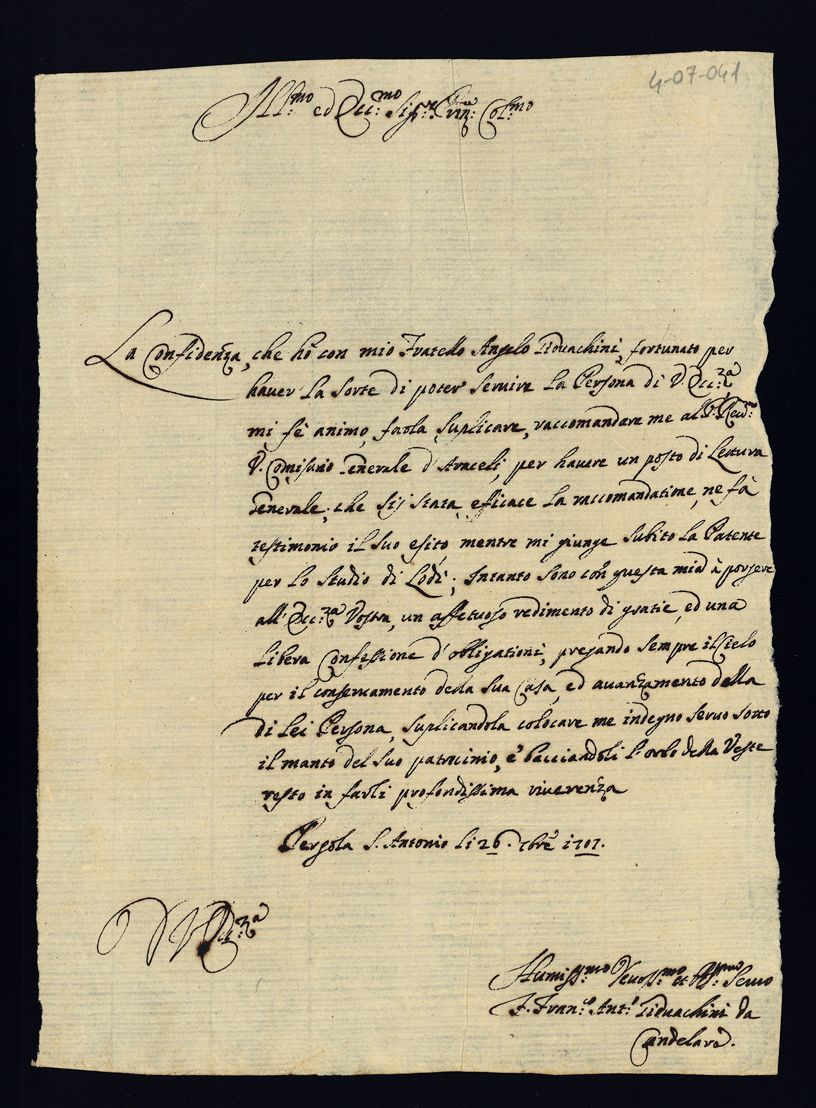 4-07-041
Ill:mo ed Ecc:mo Sig:re Prin: Col:mo
La Confidenza, che hò con mio Fratello Angelo Tiduachini, fortunato per
hauer la sorte di poter seruire la Persona di V. Ecc:za
mi fè animo, farla suplicare, raccomandare me al P. Reu:
P. Comisario Generale d'Araceli, per hauere un posto di Lettura
Generale; che sij stata efficace la raccomandatione, ne fà
testimonio il suo esito, mentre mi giunge subito la Patente
per lo studio di Lodi; Intanto sono con questa mia à porgere
all'Ecc:za Vostra, un affetuoso redimento di gratie, ed una
libera Confessione d'obligationi, pregando sempre il Cielo
per il conseruamento della sua Casa, ed auanzamento della
di lei Persona, suplicandola colocare me indegno seruo sotto
il manto del suo patrocinio, e bacciandoli l'orlo della Veste
resto in farli profondissima riuerenza
Pergola S. Antonio li 26. 7bre 1707.
D V Ecc:za
Humiss:mo Deuoss:mo et Obl:mo Seruo
F. Fran:co Ant: Tiduachini da
Candelara.